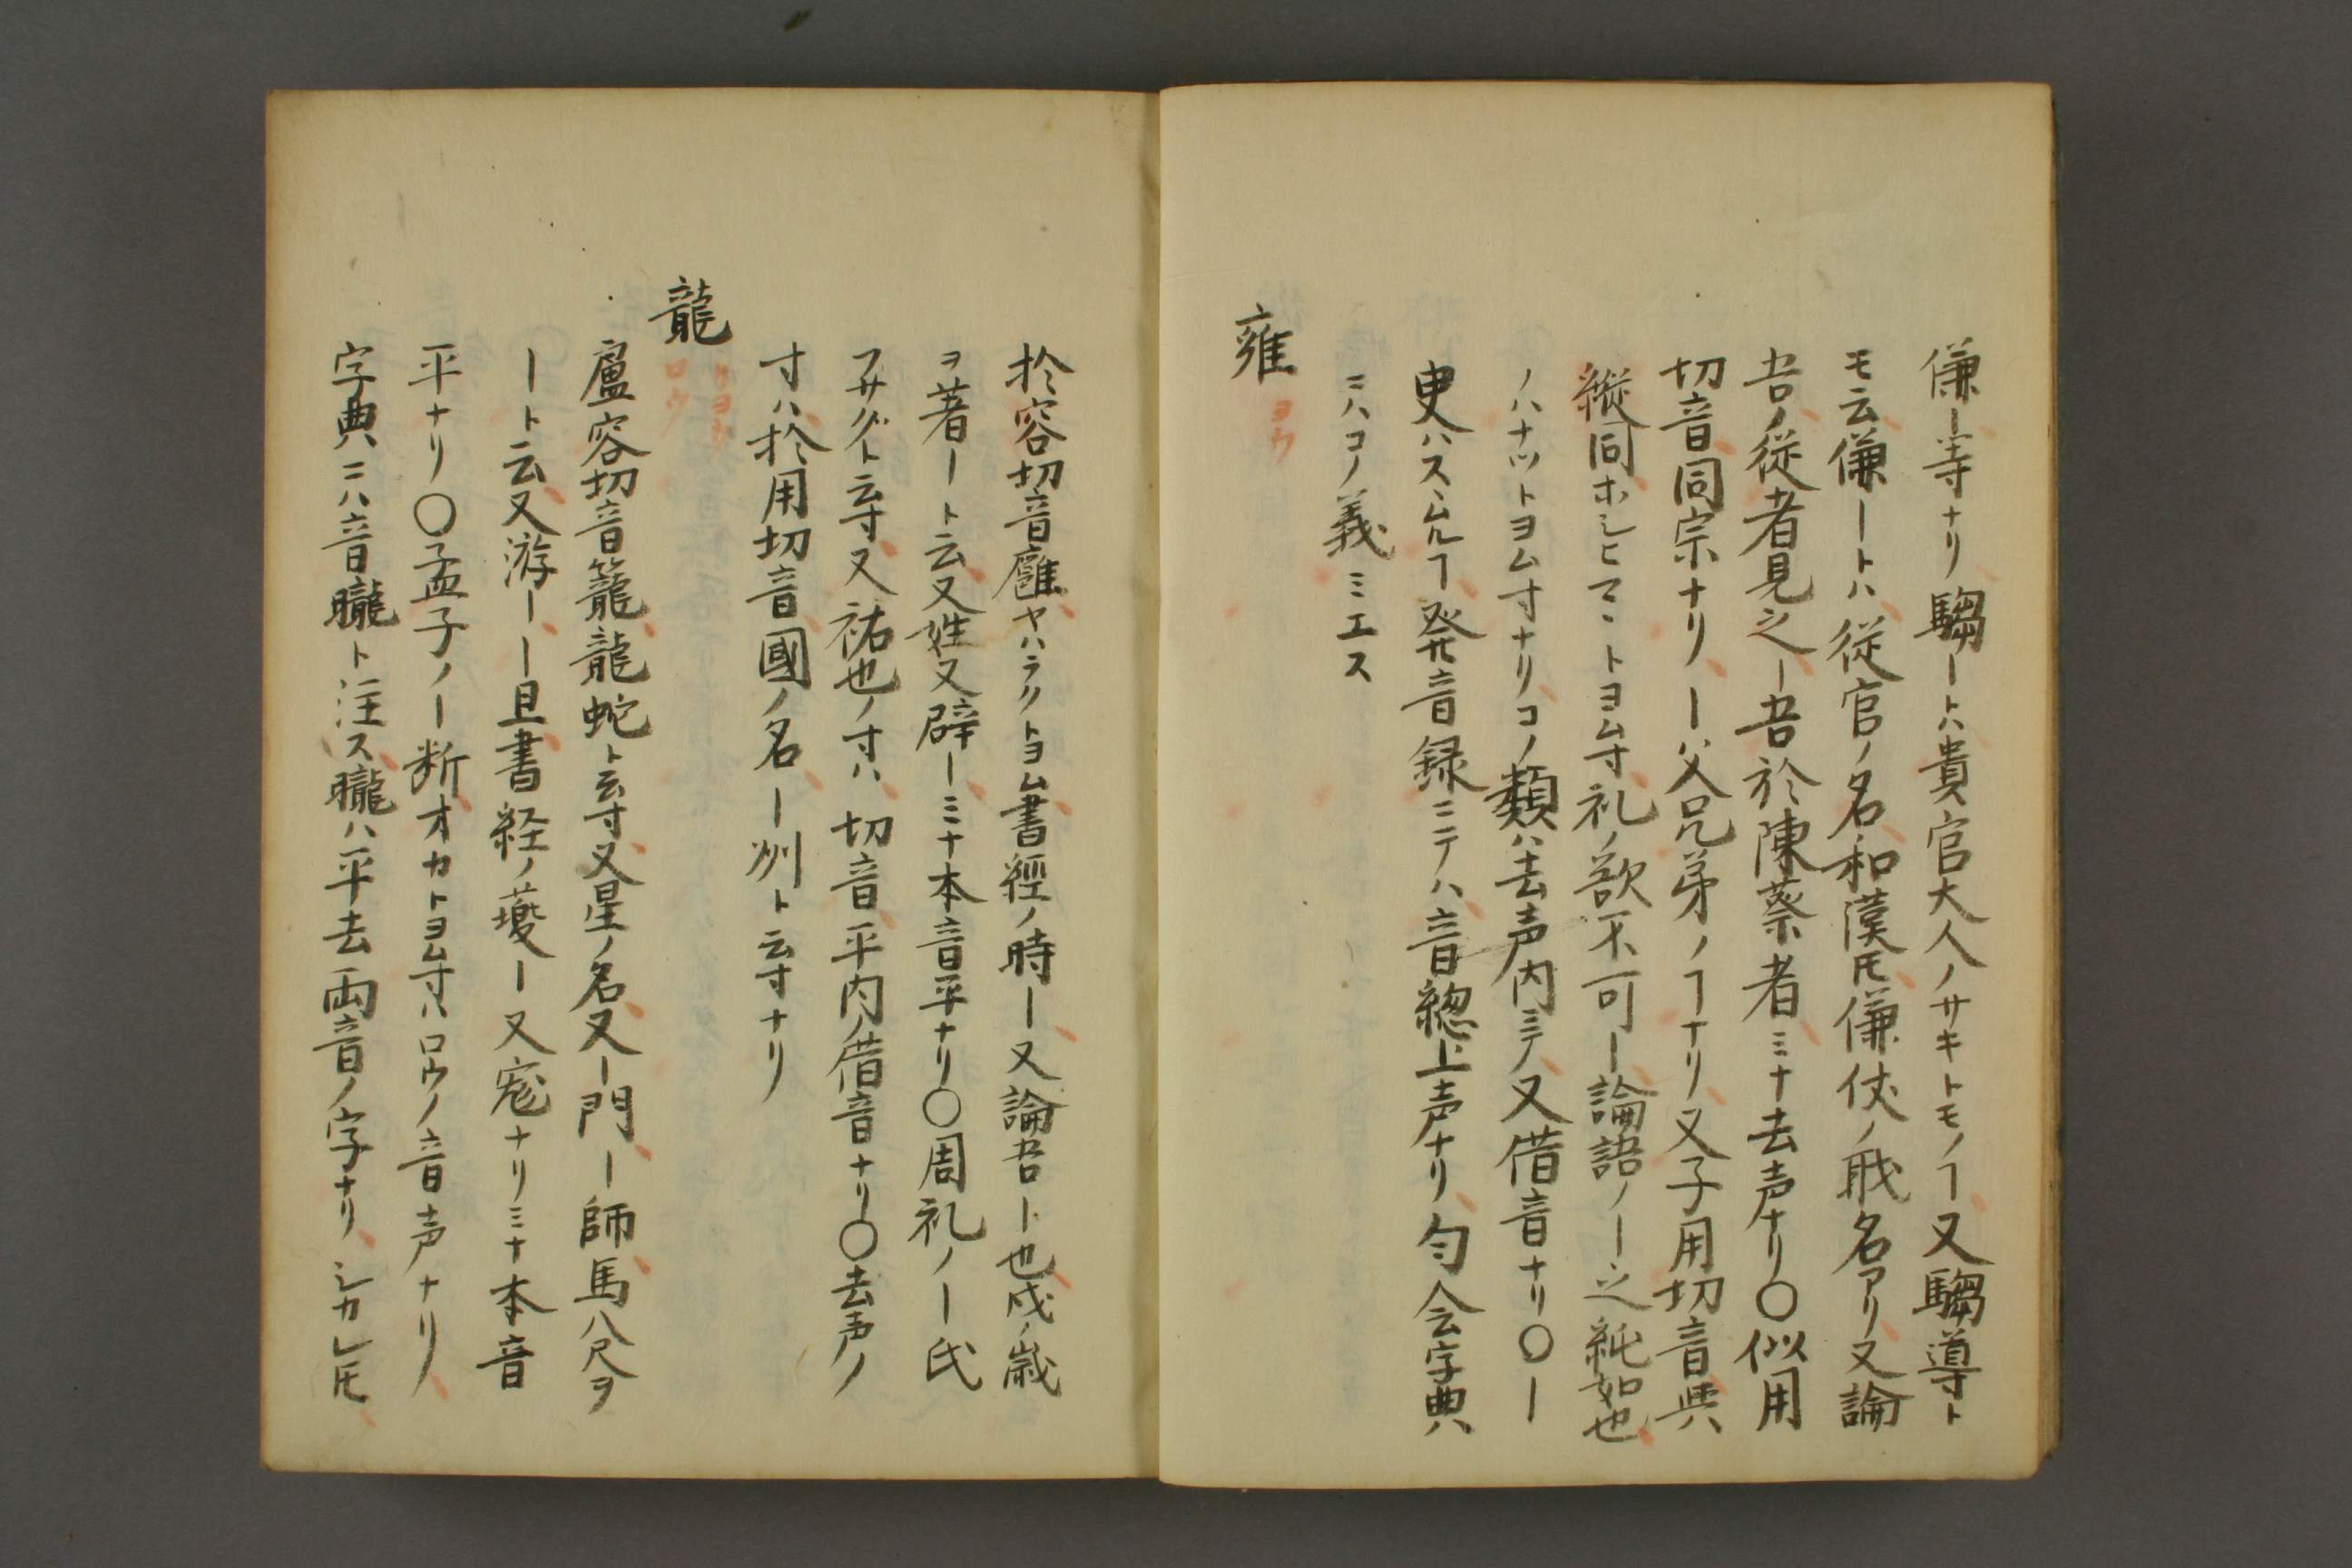 傔ー等ナリ騶ートハ貴官大人ノサキトモノヿ又騶導ト
モ云傔ートハ従官ノ名和漢𪜈傔仗ノ職名アリ又論
吾ノ従者見之ー吾於陳蔡者ミナ去声ナリ〇似用
切音同宗ナリーハ父兄弟ノヿナリ又子用切音與
縦同ホシヒマヽトヨム寸礼ノ欲不可ー論語ノー之純如也
ノハナツトヨム寸ナリコノ類ハ去声内ミテ又借音ナリ〇ー
叓ハスヽムルヿ発音録ニテハ音緫上声ナリ匀会字典
ニハコノ義ミエス
雍 ヨウ
於容切音廱ヤハラクトヨム書經ノ時ー又論吾ート也戌ノ歳
ヲ著ート云又姓又辟ーミナ本音平ナリ〇周礼ノー氏
フサグト云寸又祐也ノ寸ハ 切音平内ノ借音ナリ〇去声ノ
寸ハ於用切音國ノ名ー州ト云寸ナリ
龍 リヨウ ロウ
盧容切音籠龍蛇ト云寸又星ノ名又ー門ー師馬八尺ヲ
ート云又游ーー且書経ノ夔ー又寵ナリミナ本音
平ナリ〇孟子ノー断オカトヨム寸ハロウノ音声ナリ
字典ニハ音朧ト注ス朧ハ平去両音ノ字ナリシカレ𪜈